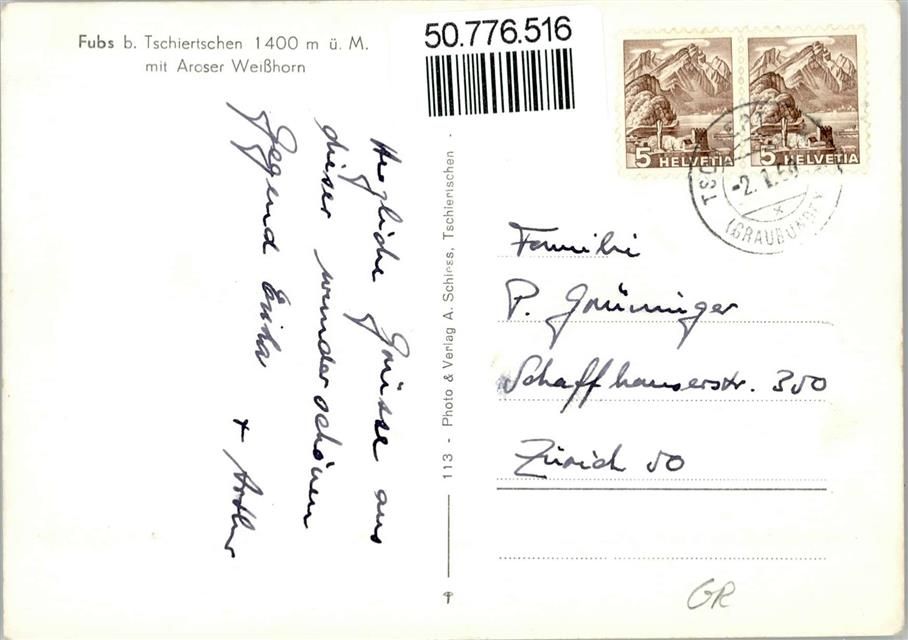 Fubs b. Tschiertschen 1400 m ü. M.
mit Aroser Weißhorn
50.776.516
5 HELVETIA
5 HELVETIA
-2. 1. 50
(GRAUBÜNDEN)
Herzliche Grüsse aus
dieser wunderschönen
Gegend Erika + Arthur
113 - Photo & Verlag A. Schloss, Tschiertschen
Familie
P. Grüninger
Schaffhauserstr. 350
Zürich 50
GR